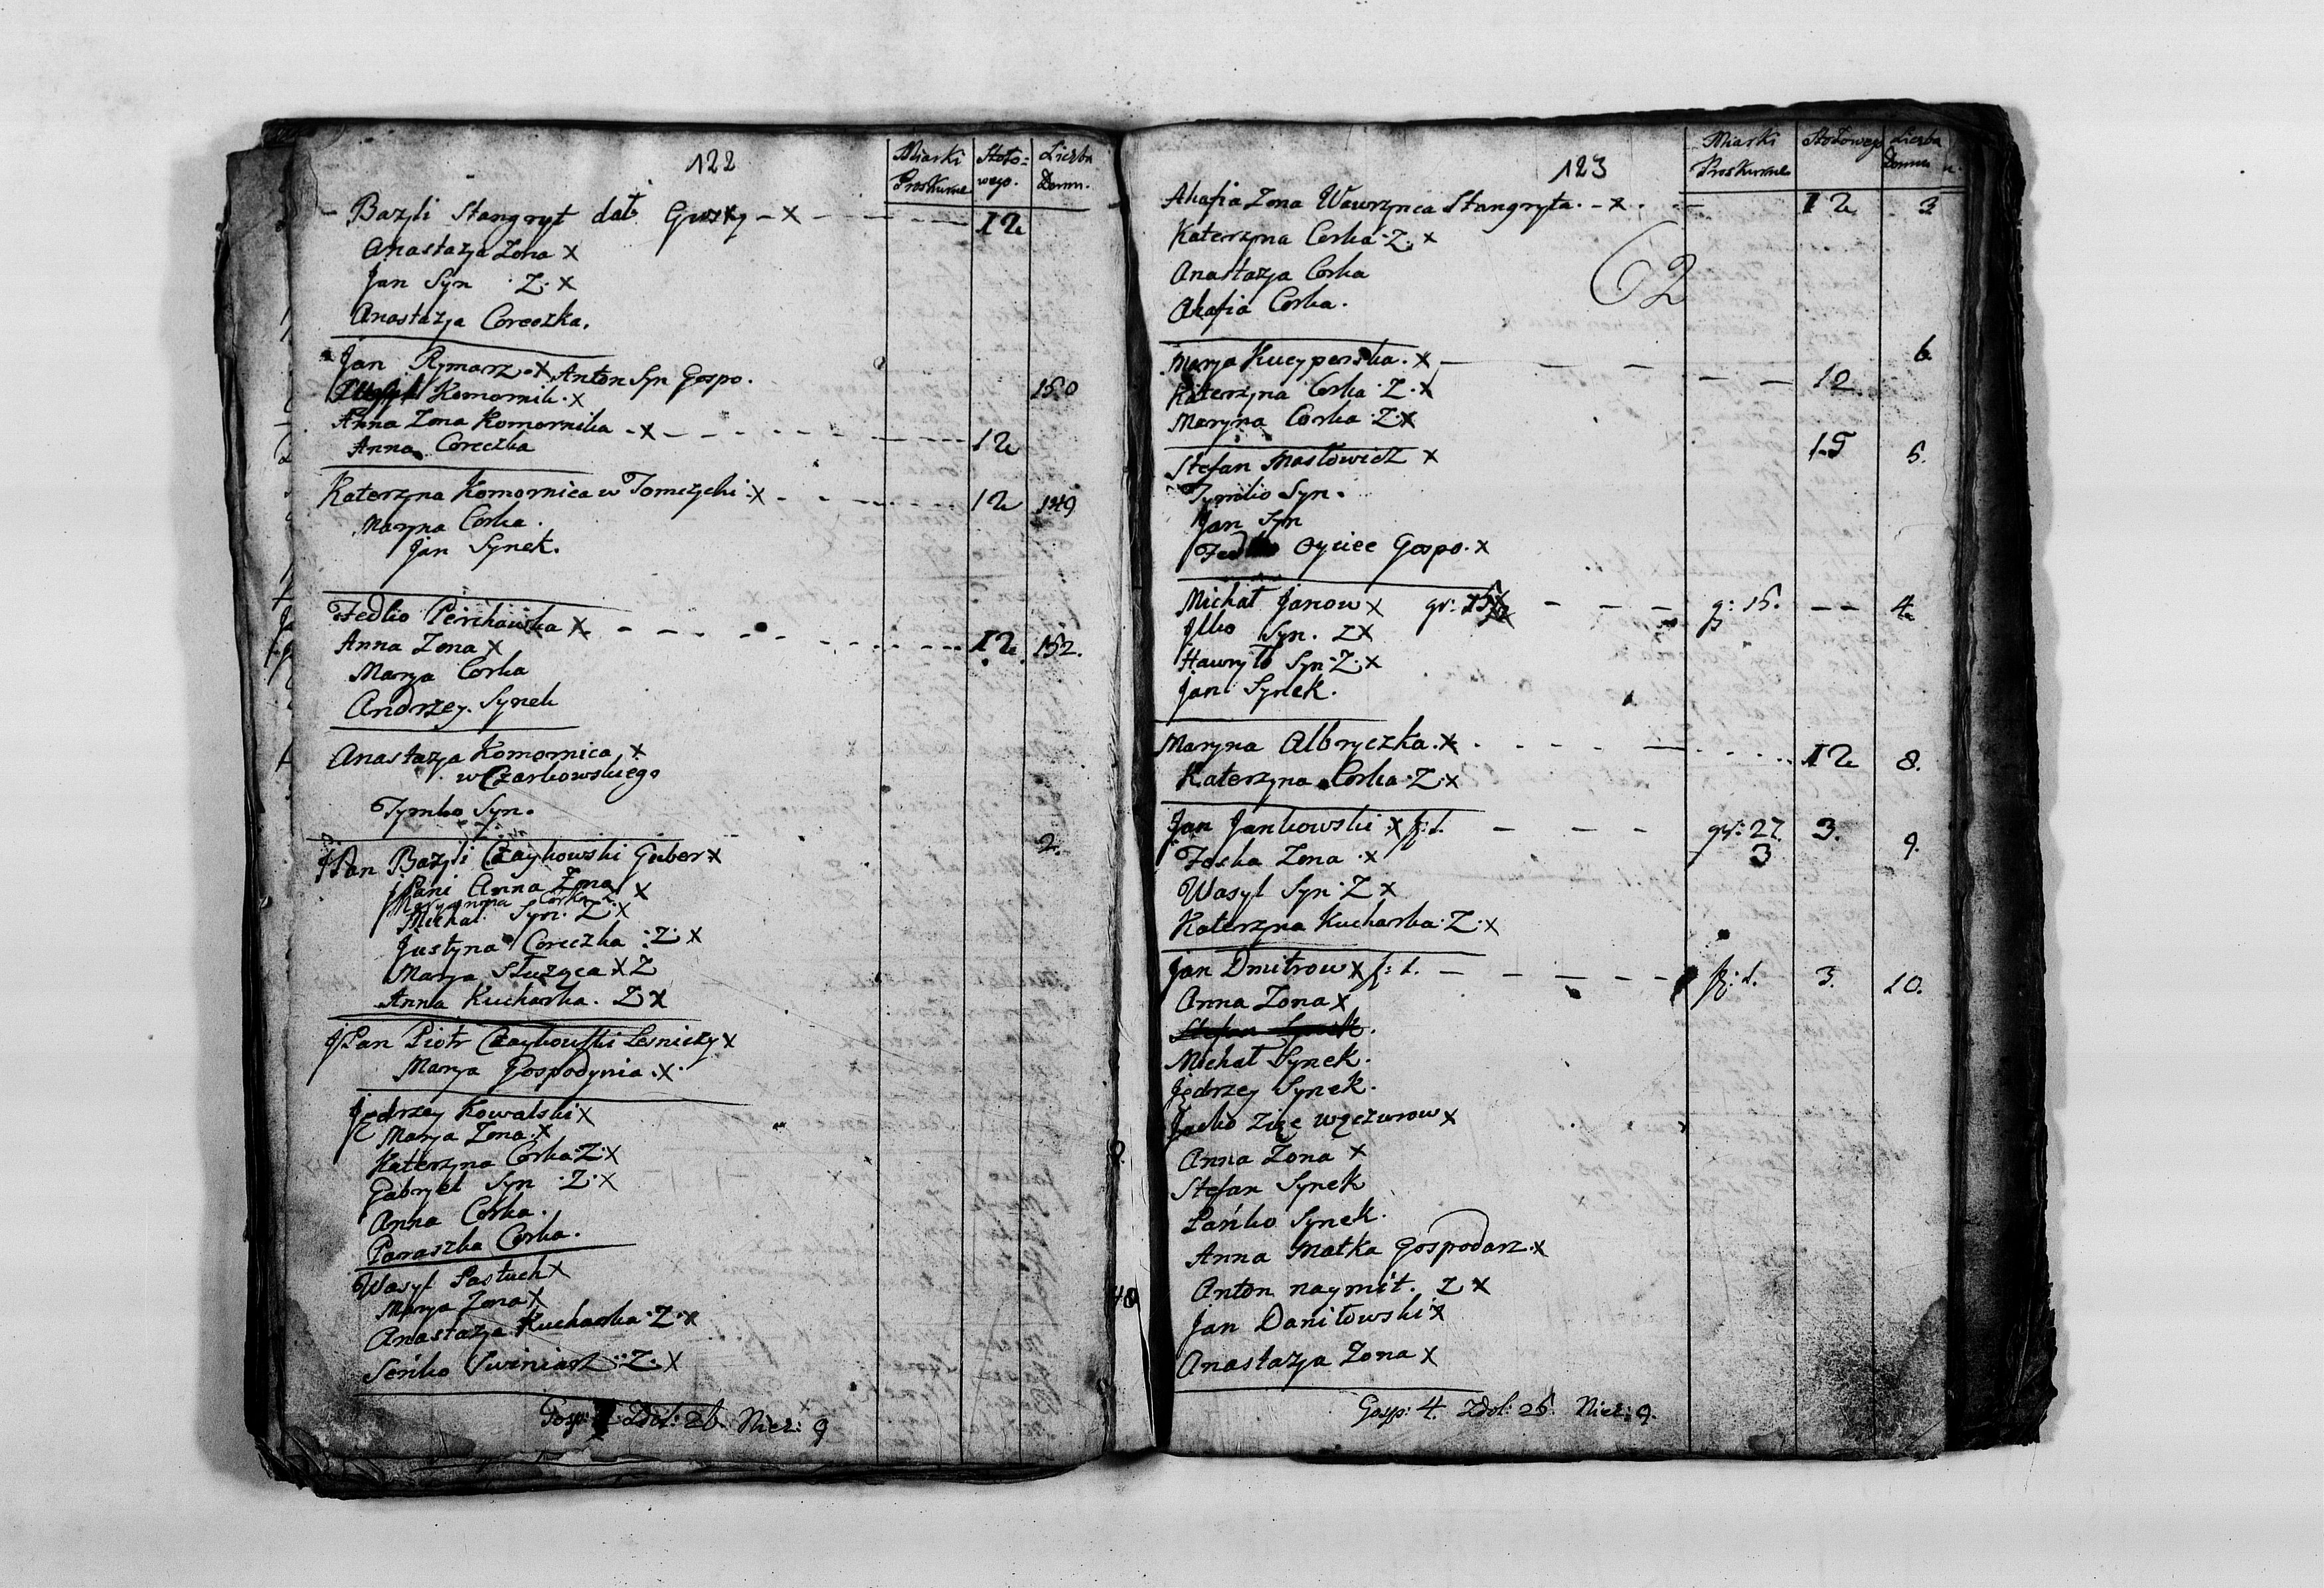 122
Miarki Proskurne
Stoło=wego.
Liczba Domu.
Bazyli Stangryt dał Gruszky - x - 12
Anastazja Zona x
Jan Syn Z. x
Anastazja Coreczka.
Jan Rymarz. x Anton Syn Gospo.
Komornik. x 150
Anna Zona Komornika - x - 12
Anna Coreczka
Katerzyna Komornica w Tomczychi x 12 149
Maryna Corka.
Jan Synek.
Fedko Perchawka x 12 152.
Anna Zona x
Marya Corka
Andrzey. Synek
Anastazja Komornica x
w Czarkowskiego
Tymko Syn.
JPan Bazyli Czaykowski Guber x 2.
JPani Anna Zona x
Maryanna Corka
Michał Syn. Z x
Justyna Coreczka :Z: x
Marya Służąca x Z
Anna Kucharka. Z x
JPan Piotr Czaykowski Lesniczy x
Marya Gospodynia. x.
Jędrzey Kowalski x
Marya Zona. x
Katerzyna Corka Z. x
Gabryel Syn .Z. x
Anna Corka.
Paraszka Corka.
Wasyl Pastuch x
Marya Zona x
Anastazja Kucharka Z. x
Seńko Swiniarz :Z. x
Gosp: Zdol: 26 Niez: 9
123
Miarki Proskurne
Stołowego
Liczba Domu
Ahafia Zona Wawrzynca Stangryta. - x. - 12 3
Katerzyna Corka Z. x
62
Anastazja Corka
Ahafia Corka.
Marya Kucyperska. x 12 6
Katerzyna Corka Z. x
Maryna Corka Z x
Stefan Masłowicz x 15 5.
Tymko Syn.
Jan Syn
Oyciec Gospo. x
Michał Janow x gr: g: 15. - - 4.
Ilko Syn. Z x
Hawryło Syn Z. x
Jan Synek.
Maryna Albryczka. x 12 8.
Katerzyna Corka Z x
Jan Jankowski x f: 1. gr: 27. 3. 9.
3
Foska Zona. x
Wasyl Syn Z x
Katerzyna Kucharka Z. x
Jan Dmitrow x f: 1. f: 1. 3. 10.
Anna Zona x
Stefan Synek.
Michał Synek.
Jędrzey Synek.
Jacko Zięc węczurow x
Anna Zona x
Stefan Synek
Pańko Synek.
Anna Matka Gospodarz. x
Anton naymit. Z x
Jan Daniłowski x
Anastazja Zona x
Gosp: 4. Zdol: 26. Niez: 9.